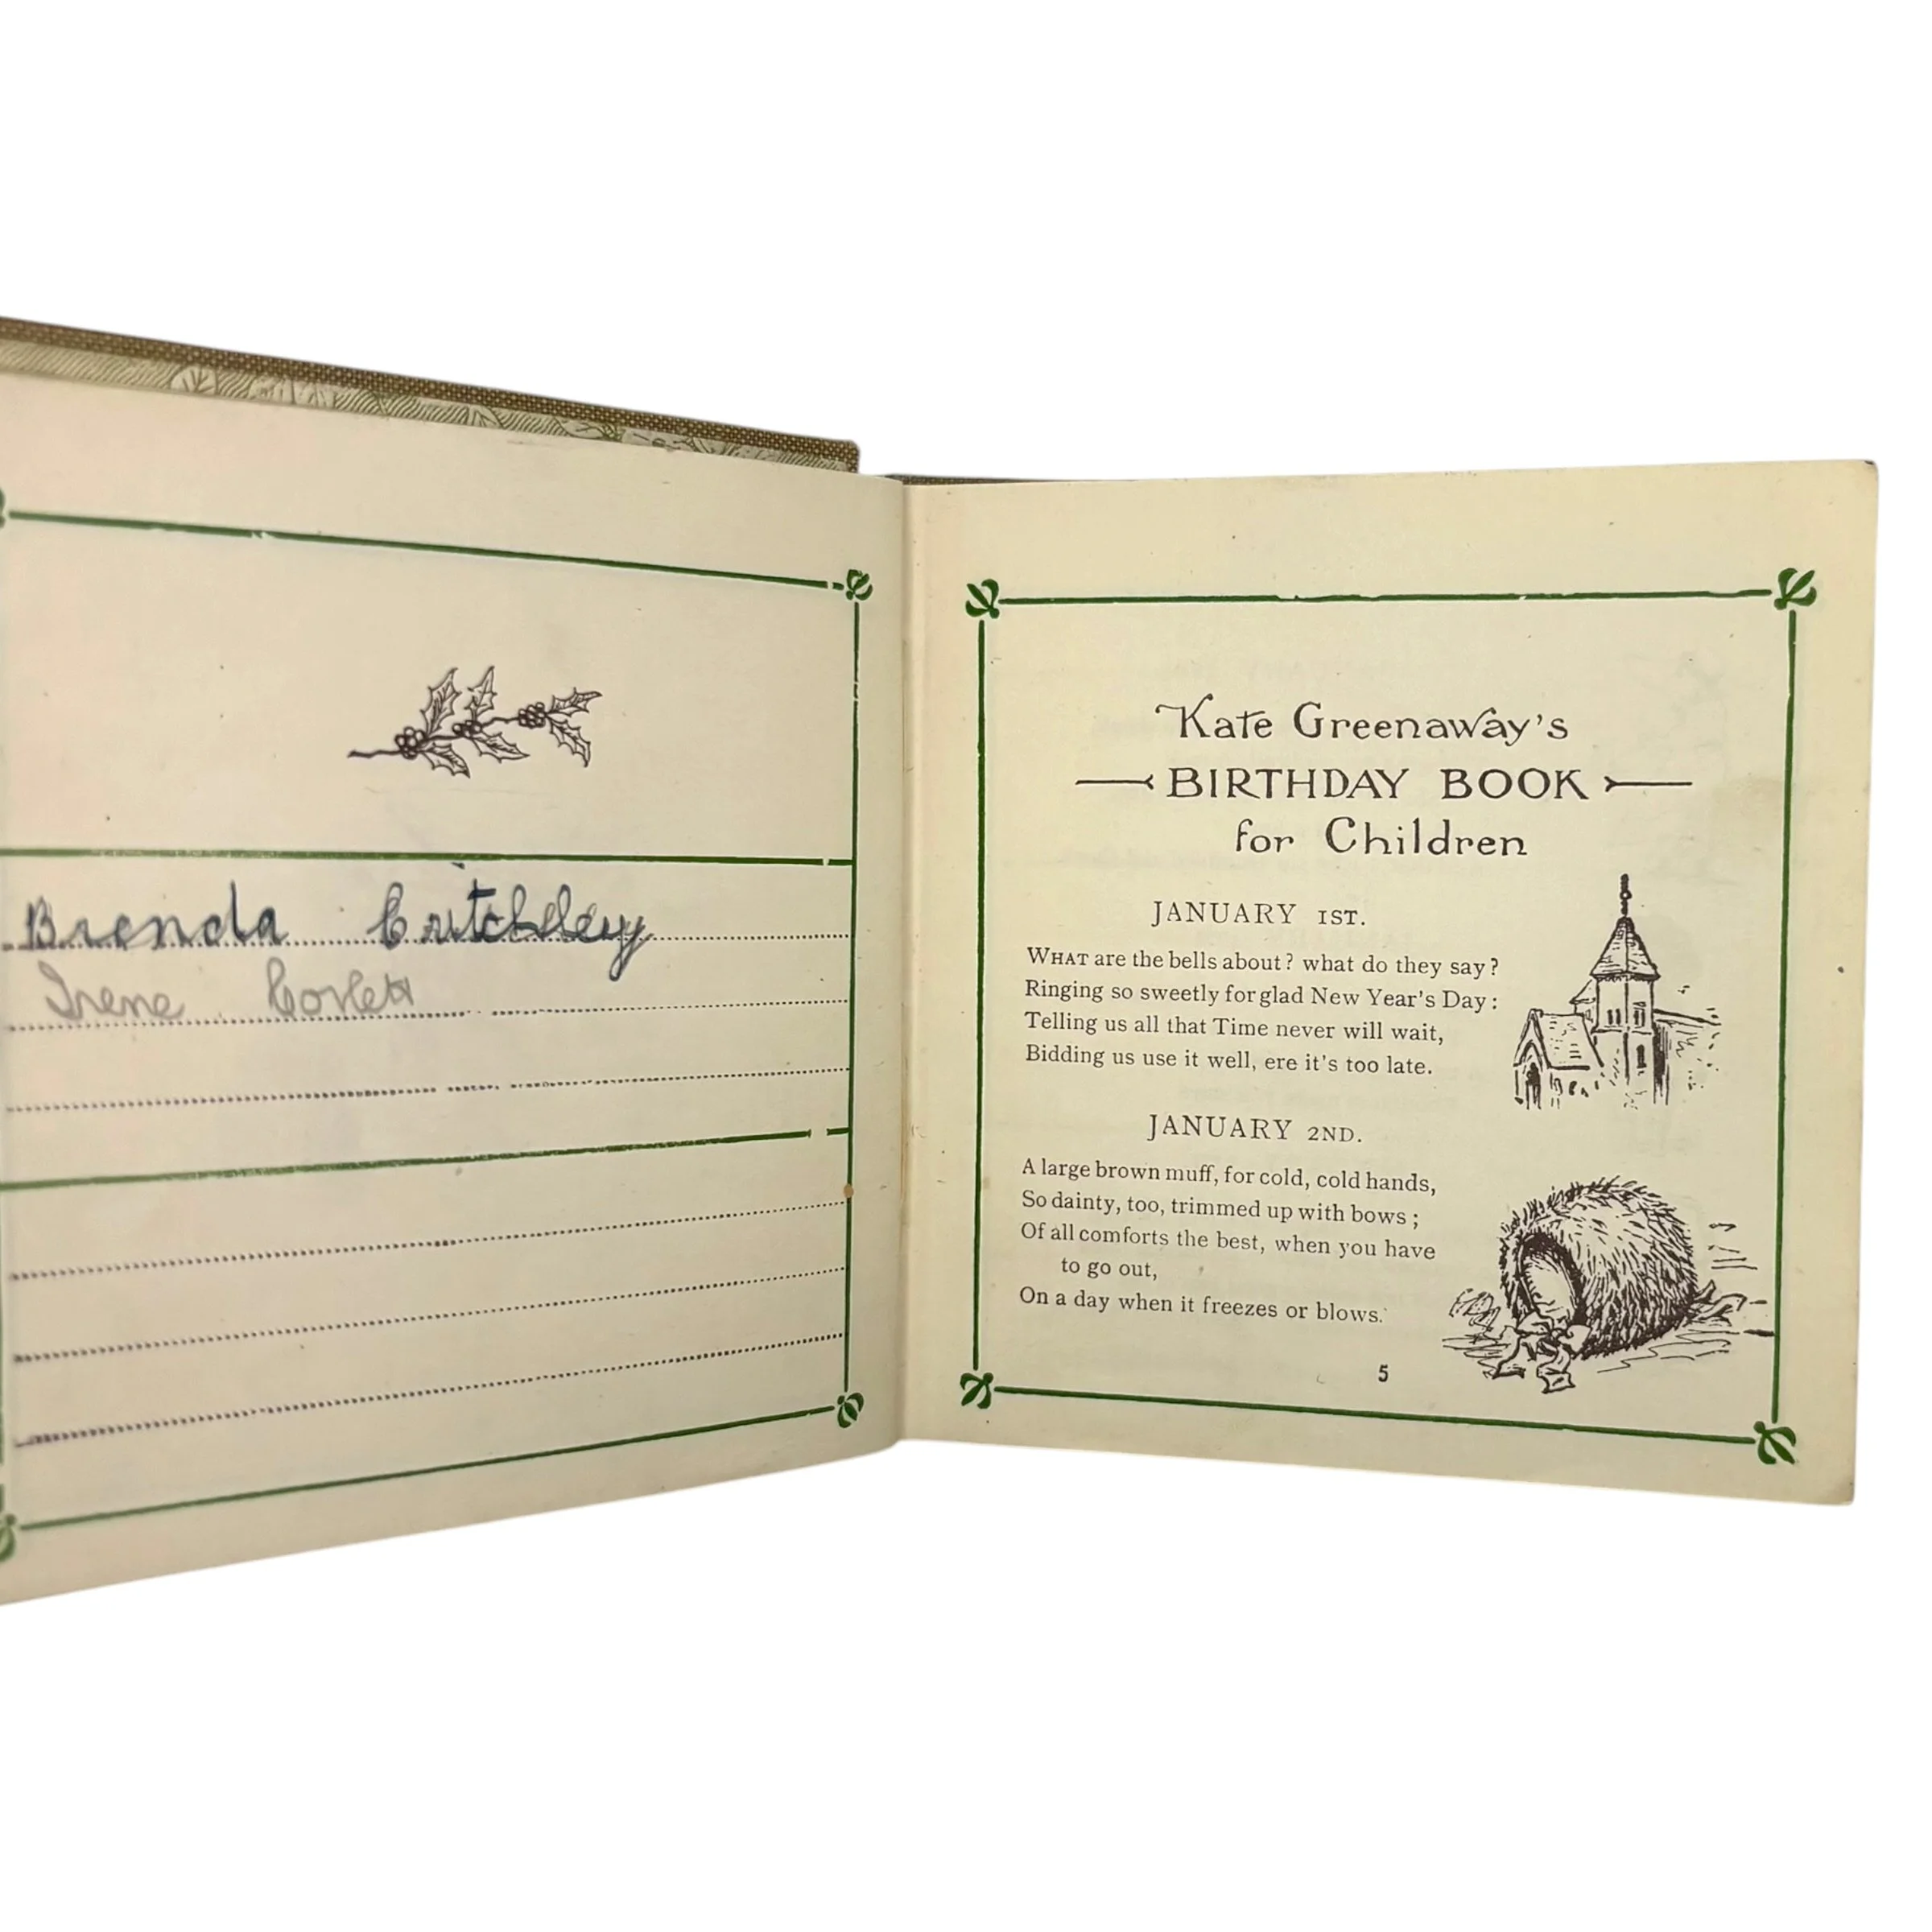 Brenda Critchley
Irene Corlett
Kate Greenaway's
BIRTHDAY BOOK
for Children
JANUARY 1ST.
WHAT are the bells about? what do they say?
Ringing so sweetly for glad New Year's Day:
Telling us all that Time never will wait,
Bidding us use it well, ere it's too late.
JANUARY 2ND.
A large brown muff, for cold, cold hands,
So dainty, too, trimmed up with bows;
Of all comforts the best, when you have
to go out,
On a day when it freezes or blows.
5